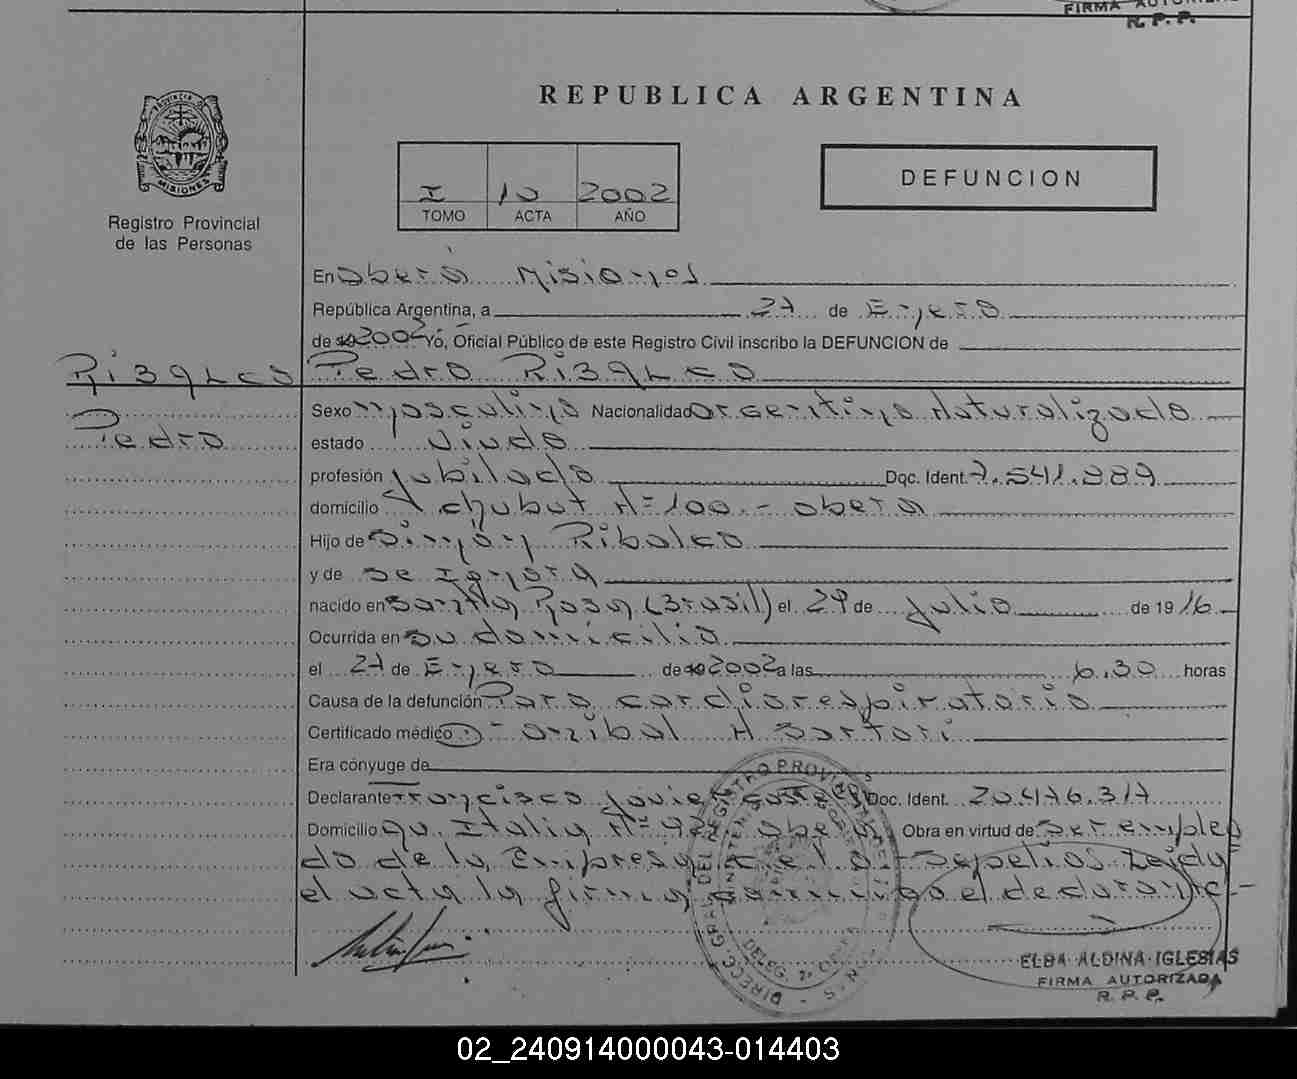 FIRMA AUTORIZADA
R. P. P.
PROVINCIA DE
MISIONES
Registro Provincial
de las Personas
REPUBLICA ARGENTINA
I 10 2002
TOMO ACTA AÑO
DEFUNCION
En Oberá Misiones
República Argentina, a 27 de Enero
de 19 2002 Yó, Oficial Público de este Registro Civil inscribo la DEFUNCION de
Ribalco Pedro Ribalco
Pedro
Sexo masculino Nacionalidad argentino Naturalizado
estado viudo
profesión jubilado Doc. Ident. 7.541.889
domicilio chubut Nº 100.- obera
Hijo de Simón Ribalco
y de se Ignora
nacido en Santa Rosa (Brasil) el 29 de julio de 1916
Ocurrida en su domicilio
el 27 de Enero de 19 2002 a las 6,30 horas
Causa de la defunción Paro cardiorespiratorio
Certificado médico D- anibal H Sartori
Era cónyuge de
Declarante Francisco javier Doc. Ident. 20.476.317
Domicilio av. Italia Nº obera Obra en virtud de ser emplea
do de la Empresa sepelios Leida
el acta la firma conmigo el declarante-
DIRECC. GRAL. DEL REGISTRO PROVINCIAL
ELBA ALDINA IGLESIAS
FIRMA AUTORIZADA
R. P. P.
02_240914000043-014403